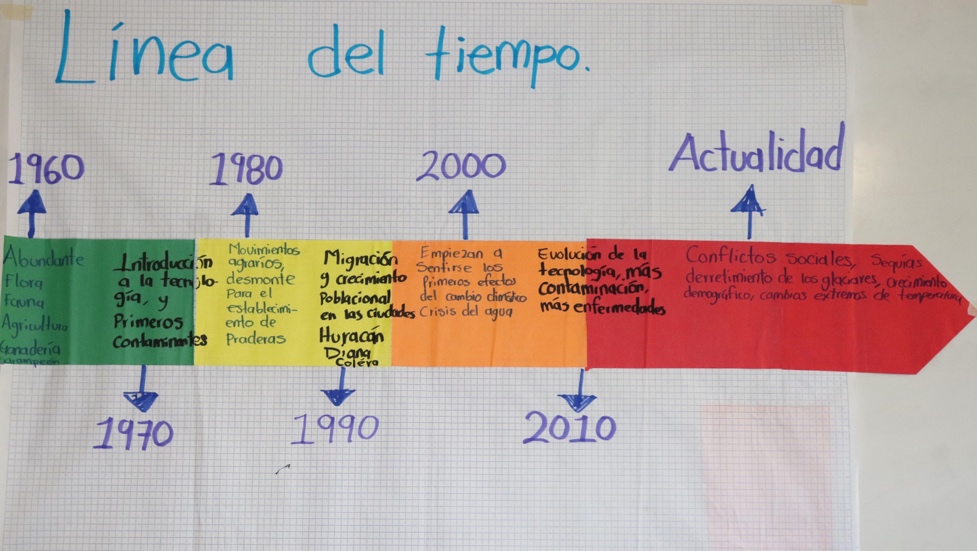 Línea del tiempo.
1960
1980
2000
Actualidad
Abundante
Flora
Fauna
Agricultura
Ganadería
Introducción
a la tecnolo-
gía, y
Primeros
Contaminantes
Movimientos
agrarios,
desmonte
Para el
establecimi-
ento de
Praderas
Migración
y crecimiento
Poblacional
en las ciudades
Huracán
Diana
Colera
Empiezan a
Sentirse los
Primeros efectos
del cambio climático
Crisis del agua
Evolución de la
tecnología, más
Contaminación,
más enfermedades
Conflictos sociales, Sequías
derretimiento de los glaciares, crecimiento
demográfico, cambios extremos de temperatura
1970
1990
2010